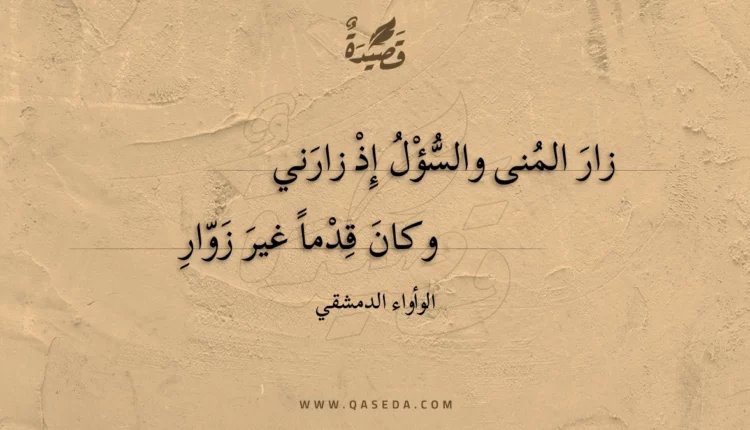 قَصِيْدَةٌ
زارَ المُنى والسُّؤْلُ إِذْ زارَني
وكانَ قِدْماً غيرَ زَوّارِ
الوأواء الدمشقي
WWW.QASEDA.COM